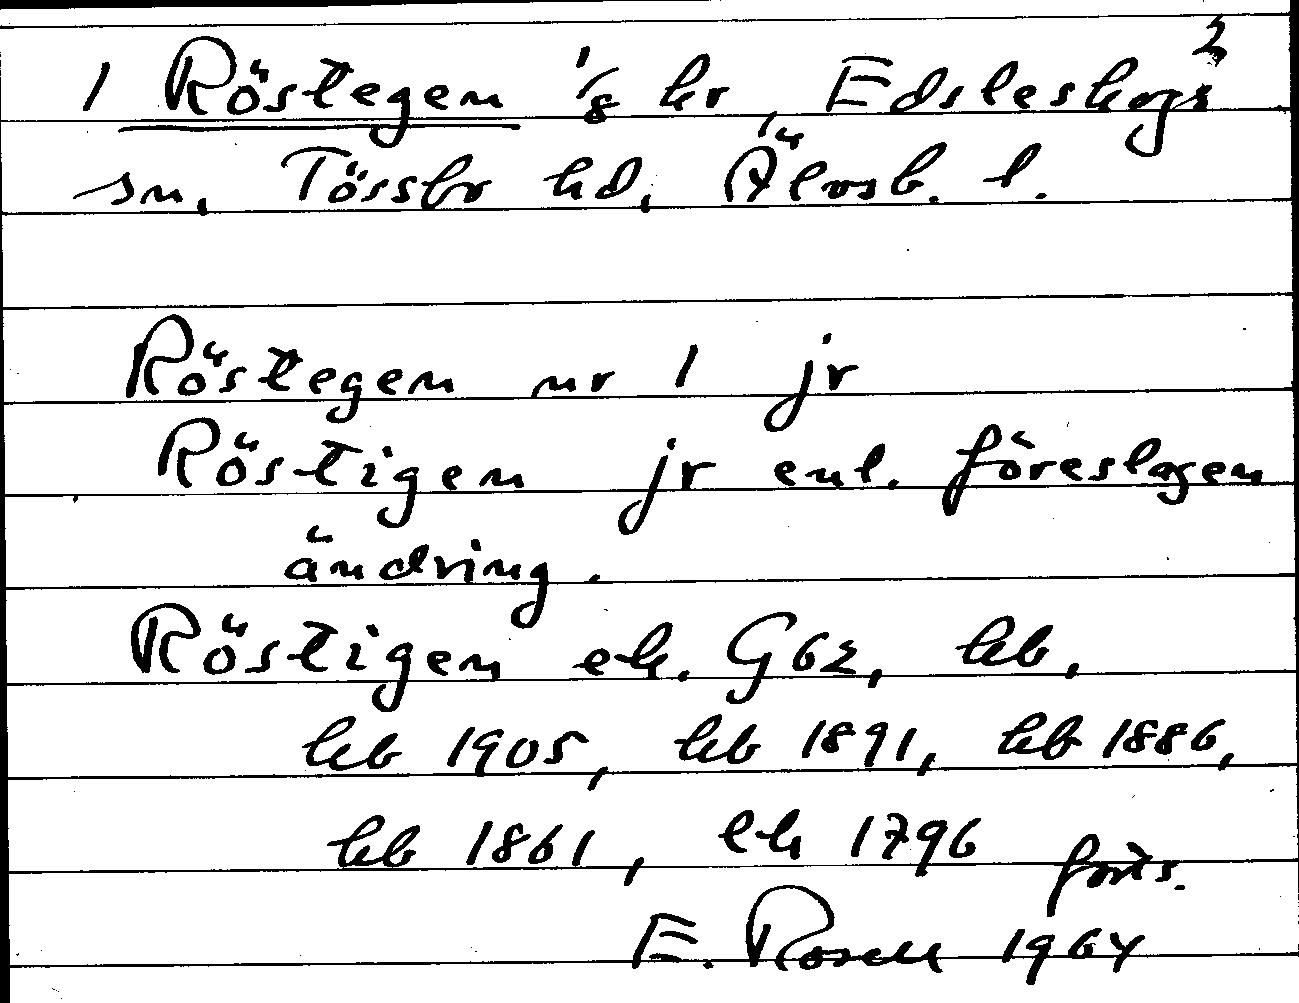 2
1 Röstegen 1/8 hr, Edsleskogs
sn, Tössbo hd, Älvsb. l.
Röstegen nr 1 jr
Röstigen jr enl. föreslagen
ändring.
Röstigen ek. G62, hb,
hb 1905, hb 1891, hb 1886,
hb 1861, lh 1796 forts.
E. Rosell 1964